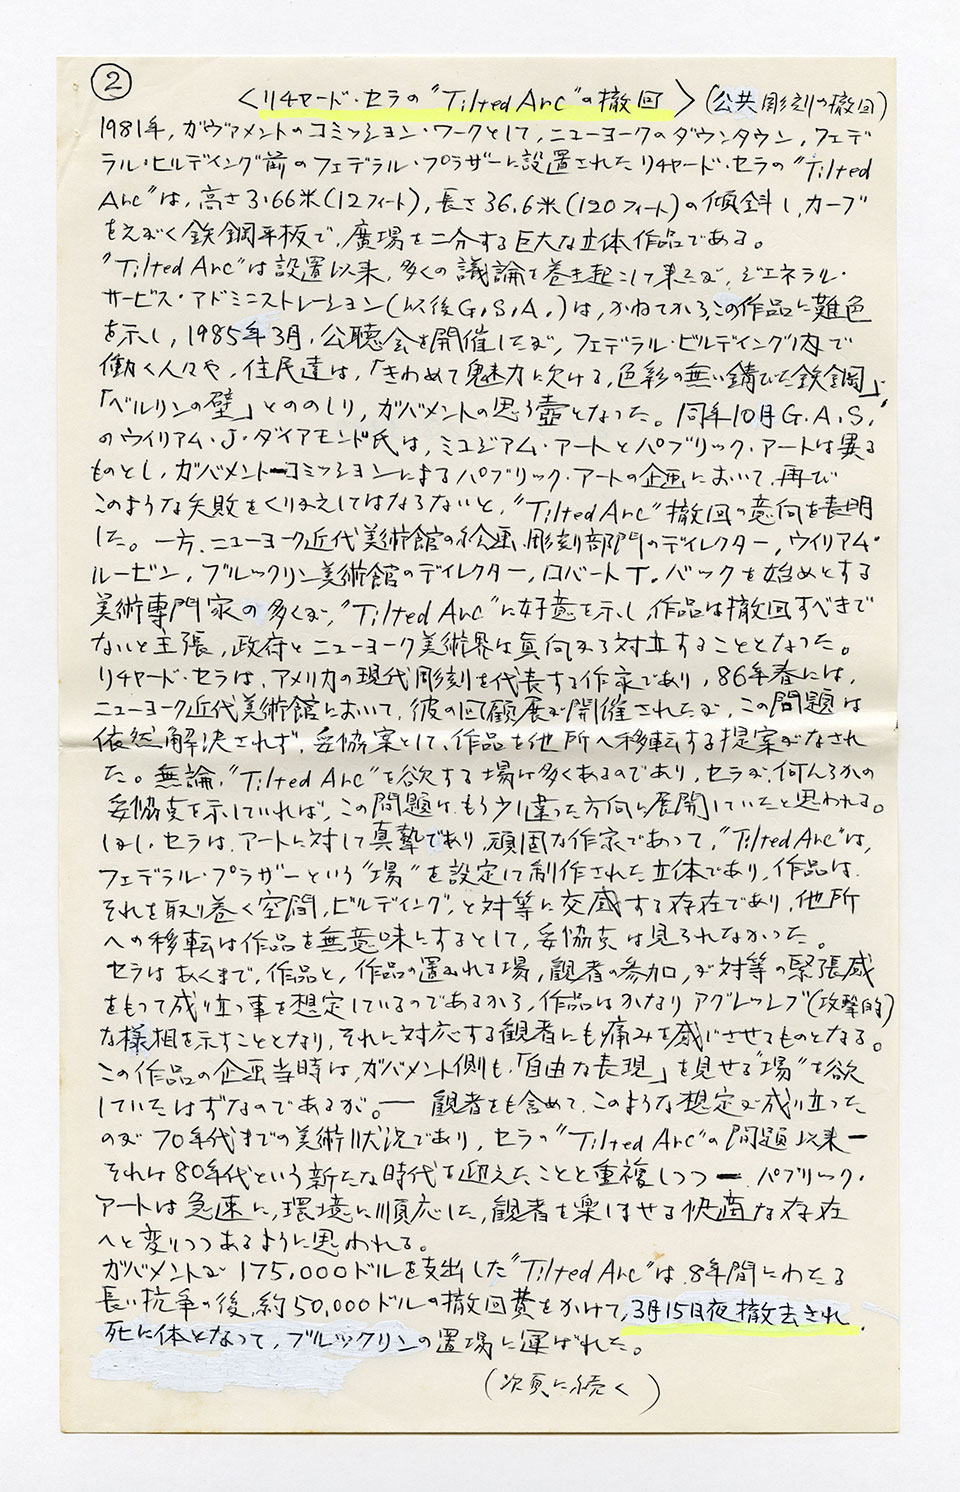 ②
〈リチャード・セラの"Tilted Arc"の撤回〉(公共彫刻の撤回)
1981年,ガヴァメントのコミッション・ワークとして,ニューヨークのダウンタウン,フェデ
ラル・ビルディング前のフェデラル・プラザーに設置されたリチャード・セラの"Tilted
Arc"は,高さ3.66米(12フィート),長さ36.6米(120フィート)の傾斜し,カーブ
をえがく鉄鋼平板で,廣場を二分する巨大な立体作品である。
"Tilted Arc"は設置以来,多くの議論を巻き起こして来たが,ジェネラル・
サービス・アドミニストレーション(以後G.S.A.)は,かねてから,この作品に難色
を示し,1985年3月,公聴会を開催したが,フェデラル・ビルディング内で
働く人々や,住民達は,「きわめて魅力に欠ける,色彩の無い錆びた鉄鋼」,
「ベルリンの壁」とののしり,ガバメントの思う壺となった。同年10月G.A.S.
のウイリアム・J・ダイアモンド氏は,ミュジアム・アートとパブリック・アートは異る
ものとし,ガバメントコミッションによるパブリック・アートの企画において,再び
このような失敗をくりかえしてはならないと,"Tilted Arc"撤回の意向を表明
した。一方,ニューヨーク近代美術館の絵画,彫刻部門のディレクター,ウイリアム・
ルービン,ブルックリン美術館のディレクター,ロバートT.バックを始めとする
美術専門家の多くが,"Tilted Arc"に好意を示し,作品は撤回すべきで
ないと主張,政府とニューヨーク美術界は真向から対立することとなった。
リチャード・セラは,アメリカの現代彫刻を代表する作家であり,86年春には,
ニューヨーク近代美術館において,彼の回顧展が開催されたが,この問題は
依然解決されず,妥協案として,作品を他所へ移転する提案がなされ
た。無論,"Tilted Arc"を欲する場は多くあるのであり,セラが,何んらかの
妥協点を示していれば,この問題は,もう少し違った方向に展開していたと思われる。
しかし,セラは,アートに対して真摯であり,頑固な作家であって,"Tilted Arc"は,
フェデラル・プラザーという"場"を設定して制作された立体であり,作品は,
それを取り巻く空間,ビルディング,と対等に交感する存在であり,他所
への移転は作品を無意味にするとして,妥協点は見られなかった。
セラはあくまで,作品と,作品の置かれる場,観者の参加,が対等の緊張感
をもって成り立つ事を想定しているのであるから,作品はかなりアグレッシブ(攻撃的)
な様相を示すこととなり,それに対応する観者にも痛みを感じさせるものとなる。
この作品の企画当時は,ガバメント側も,「自由な表現」を見せる"場"を欲
していたはずなのであるが。― 観者をも含めて,このような想定が成り立った
のが70年代までの美術状況であり,セラの"Tilted Arc"の問題以来―
それは80年代という新たな時代を迎えたことと重複しつつ―パブリック・
アートは急速に,環境に順応した,観者を楽しませる快適な存在
へと変りつつあるように思われる。
ガバメントが175,000ドルを支出した"Tilted Arc"は,8年間にわたる
長い抗争の後,約50,000ドルの撤回費をかけて,3月15日夜撤去され,
死に体となって,ブルックリンの置場に運ばれた。
(次頁に続く)